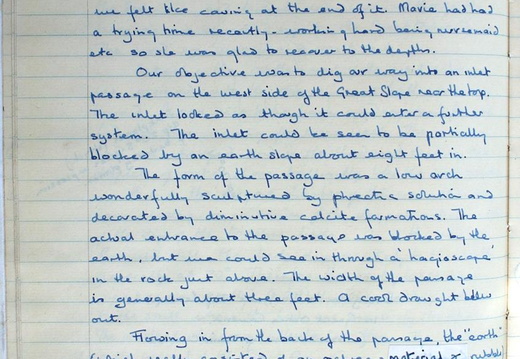 we felt like caving at the end of it. Mavie had had
a trying time recently - working hard being nursemaid
etc so she was glad to recover to the depths.
Our objective was to dig our way into an inlet
passage on the west side of the Great Slope near the top.
The inlet looked as though it could enter a further
system. The inlet could be seen to be partially
blocked by an earth slope about eight feet in.
The form of the passage was a low arch
wonderfully sculptured by phreatic solution and
decorated by diminutive calcite formations. The
actual entrance to the passage was blocked by the
earth, but we could see in through a 'hagioscope'
in the rock just above. The width of the passage
is generally about three feet. A cool draught blew
out.
Flowing in from the back of the passage, the "earth"
(which really consisted of material & rubble